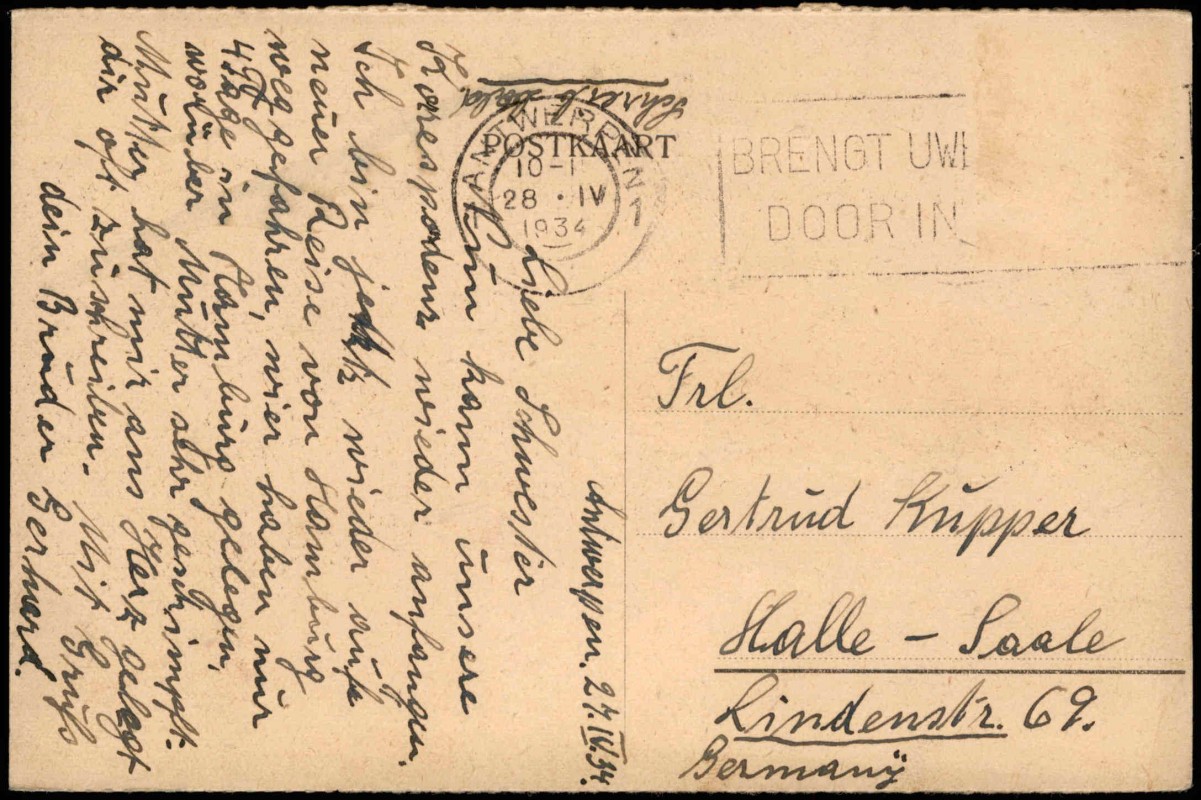 Antwerpen. 27.IV.34.
Liebe Schwester
Nun kann unsere
Korrespodens wieder anfangen.
Ich bin jetzt wieder aufs
neuer Reise von Hamburg
weggefahren, wier haben nur
4 Tage in Hamburg gelegen,
worüber Mutter sehr geschimpft.
Mutter hat mir ans Herz gelegt
dir oft zuschreiben. Mit Gruß
dein Bruder Gerhard.
Schreib bald
POSTKAART
ANTWERPEN 1
10-1
28 · IV
1934
BRENGT UW
DOOR IN
Frl.
Gertrud Kupper
Halle - Saale
Lindenstr. 69.
Germany